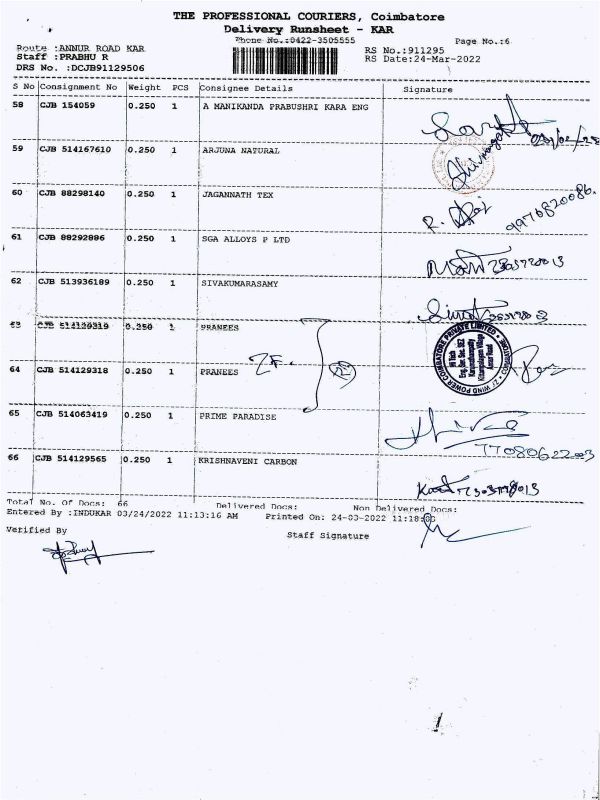 THE PROFESSIONAL COURIERS, Coimbatore
Delivery Runsheet - KAR
Phone No.:0422-3505555
Page No.:6
Route :ANNUR ROAD KAR
Staff :PRABHU R
DRS No. :DCJB91129506
RS No.:911295
RS Date:24-Mar-2022
S No Consignment No Weight PCS Consignee Details Signature
58 CJB 154059 0.250 1 A MANIKANDA PRABUSHRI KARA ENG
59 CJB 514167610 0.250 1 ARJUNA NATURAL
60 CJB 88298140 0.250 1 JAGANNATH TEX
9976820086.
61 CJB 88292886 0.250 1 SGA ALLOYS P LTD
62 CJB 513936189 0.250 1 SIVAKUMARASAMY
63 CJB 514129319 0.250 1 PRANEES
64 CJB 514129318 0.250 1 PRANEES
65 CJB 514063419 0.250 1 PRIME PARADISE
66 CJB 514129565 0.250 1 KRISHNAVENI CARBON
Total No. Of Docs: 66 Delivered Docs: Non Delivered Docs:
Entered By :INDUKAR 03/24/2022 11:13:16 AM Printed On: 24-03-2022 11:18:
Verified By
Staff Signature